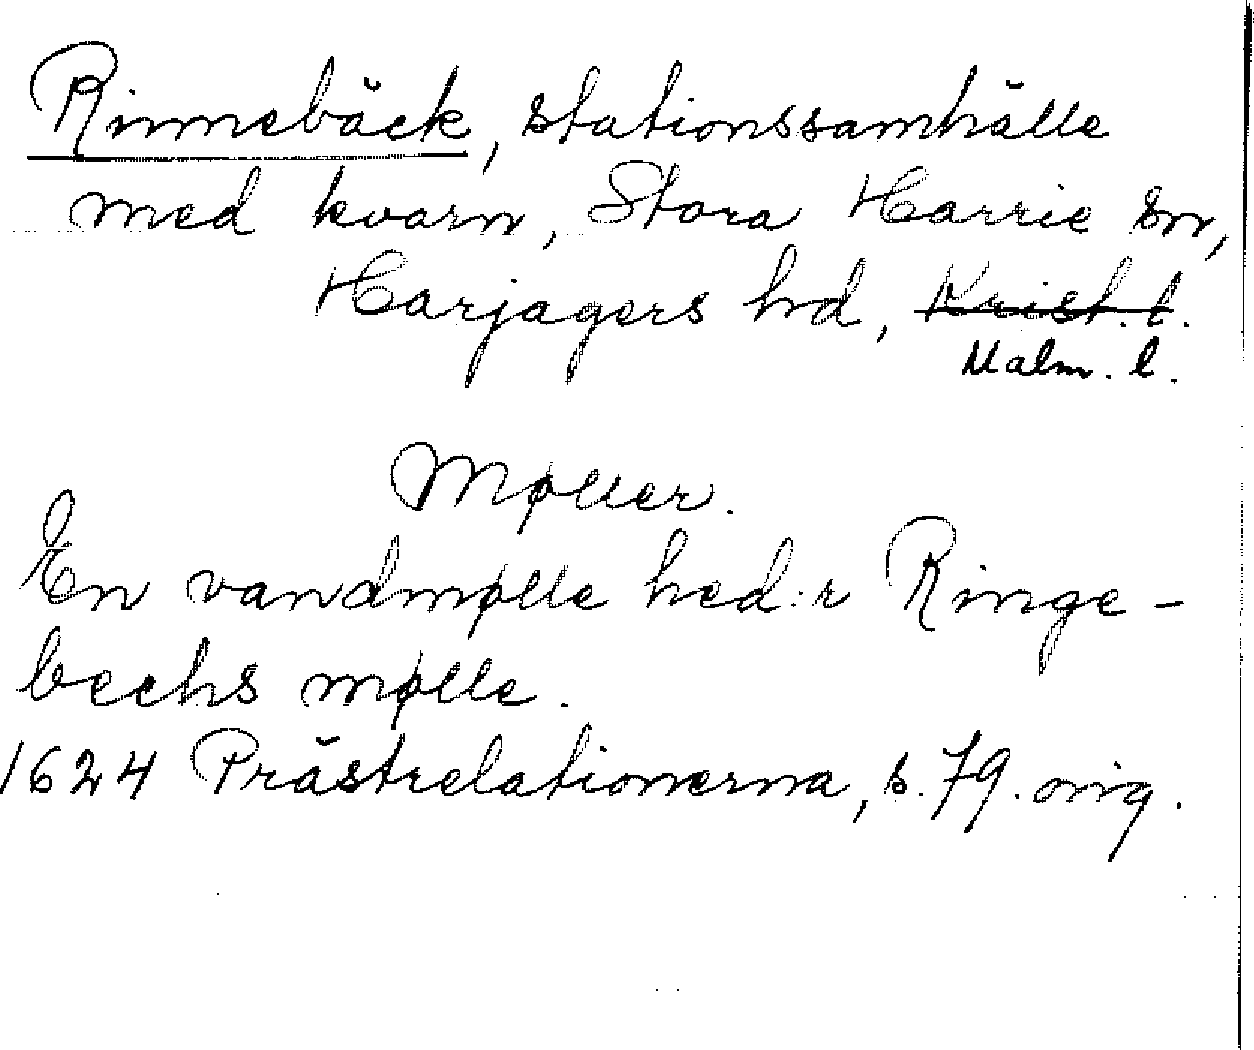 Rinnebäck, stationssamhälle
med kvarn, Stora Harrie sn,
Harjagers hd, Krist. l.
Malm. l.
Møller.
En vandmølle hed:r Ringe-
bechs mølle.
1624 Prästrelationerna, s. 79. orig.